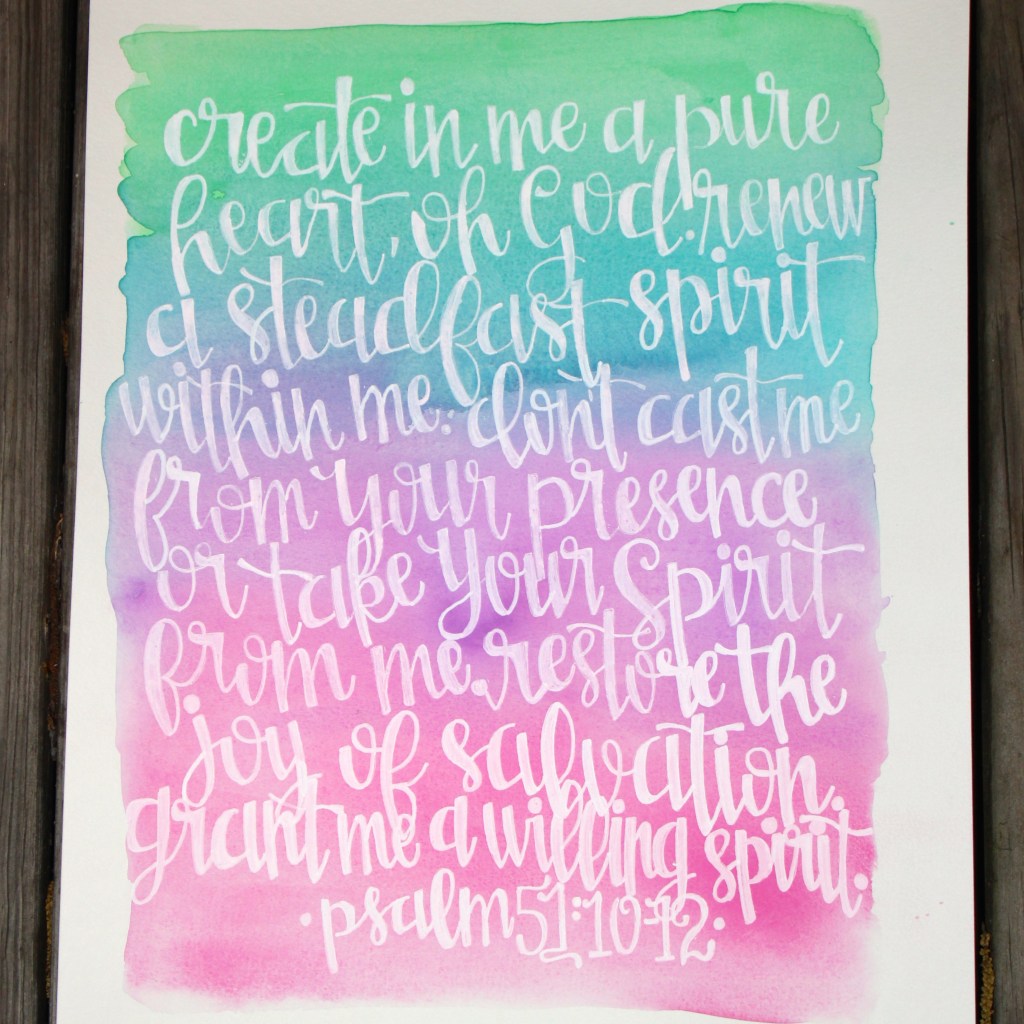 create in me a pure
heart, oh God. renew
a steadfast spirit
within me. don't cast me
from your presence
or take Your Spirit
from me. restore the
joy of salvation.
grant me a willing spirit.
· psalm 51:10-12 ·